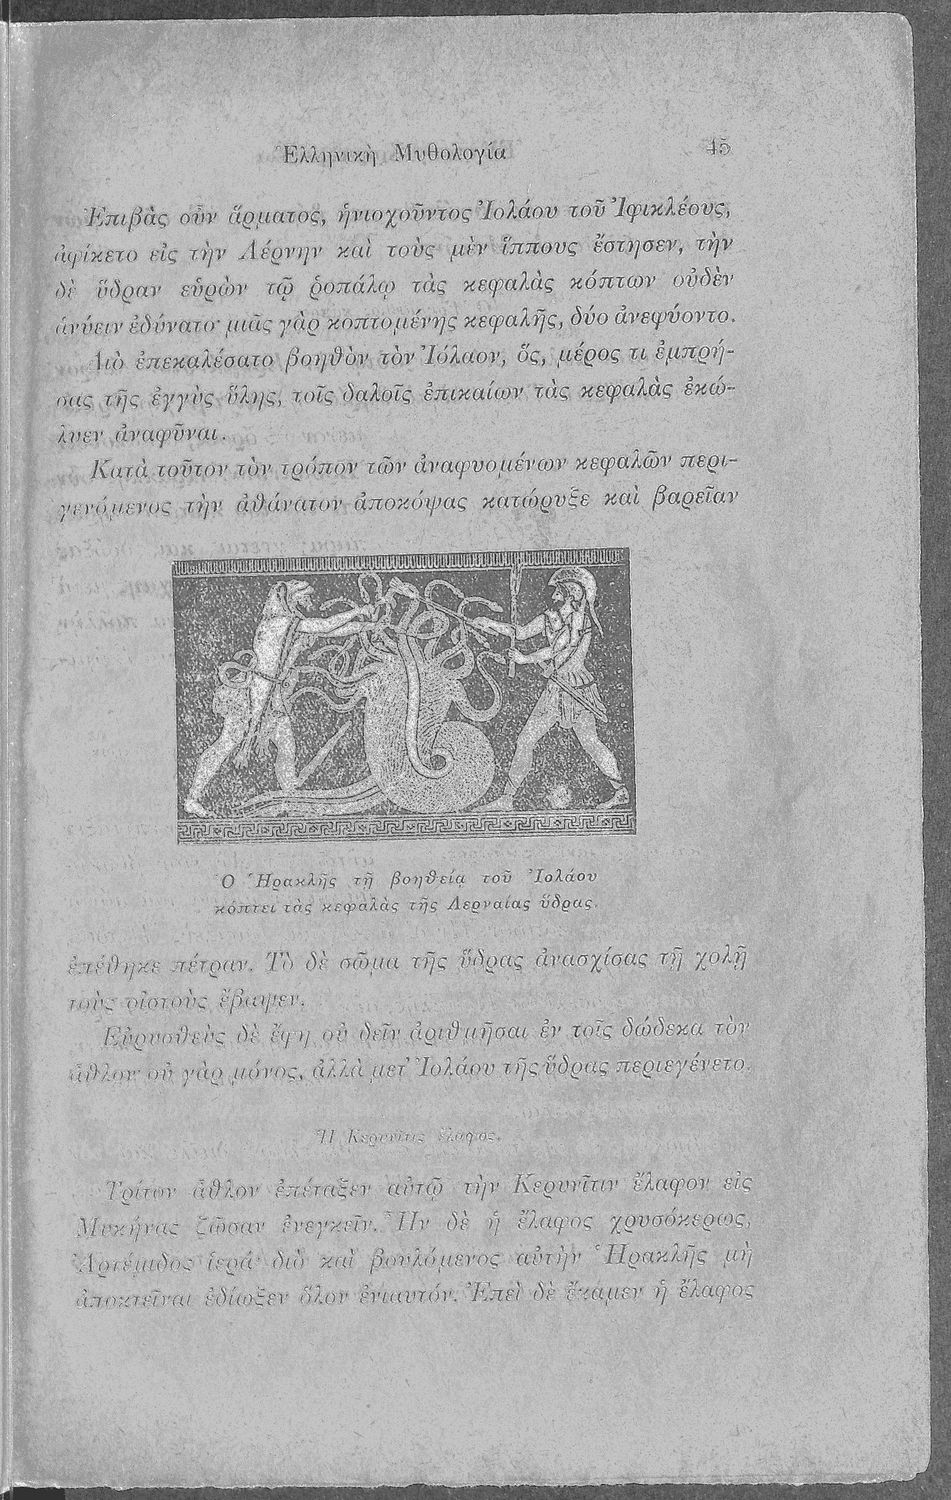 Ἑλληνικὴ Μυθολογία 45
Ἐπιβὰς οὖν ἅρματος, ἡνιοχοῦντος Ἰολάου τοῦ Ἰφικλέους,
ἀφίκετο εἰς τὴν Λέρνην καὶ τοὺς μὲν ἵππους ἔστησεν, τὴν
δὲ ὕδραν εὑρὼν τῷ ῥοπάλῳ τὰς κεφαλὰς κόπτων οὐδὲν
ἀνύειν ἐδύνατο· μιᾶς γὰρ κοπτομένης κεφαλῆς, δύο ἀνεφύοντο.
Διὸ ἐπεκαλέσατο βοηθὸν τὸν Ἰόλαον, ὅς, μέρος τι ἐμπρή-
σας τῆς ἐγγὺς ὕλης, τοῖς δαλοῖς ἐπικαίων τὰς κεφαλὰς ἐκώ-
λυεν ἀναφῦναι.
Κατὰ τοῦτον τὸν τρόπον τῶν ἀναφυομένων κεφαλῶν περι-
γενόμενος τὴν ἀθάνατον ἀποκόψας κατώρυξε καὶ βαρεῖαν
Ὁ Ἡρακλῆς τῇ βοηθείᾳ τοῦ Ἰολάου
κόπτει τὰς κεφαλὰς τῆς Λερναίας ὕδρας.
ἐπέθηκε πέτραν. Τὸ δὲ σῶμα τῆς ὕδρας ἀνασχίσας τῇ χολῇ
τοὺς οἰστοὺς ἔβαψεν.
Εὐρυσθεὺς δὲ ἔφη οὐ δεῖν ἀριθμῆσαι ἐν τοῖς δώδεκα τὸν
ἆθλον· οὐ γὰρ μόνος, ἀλλὰ μετ' Ἰολάου τῆς ὕδρας περιεγένετο.
Ἡ Κερυνῖτις ἔλαφος.
Τρίτον ἆθλον ἐπέταξεν αὐτῷ τὴν Κερυνῖτιν ἔλαφον εἰς
Μυκήνας ζῶσαν ἐνεγκεῖν. Ἦν δὲ ἡ ἔλαφος χρυσόκερως,
Ἀρτέμιδος ἱερά· διὸ καὶ βουλόμενος αὐτὴν Ἡρακλῆς μὴ
ἀποκτεῖναι ἐδίωξεν ὅλον ἐνιαυτόν. Ἐπεὶ δὲ ἔκαμεν ἡ ἔλαφος